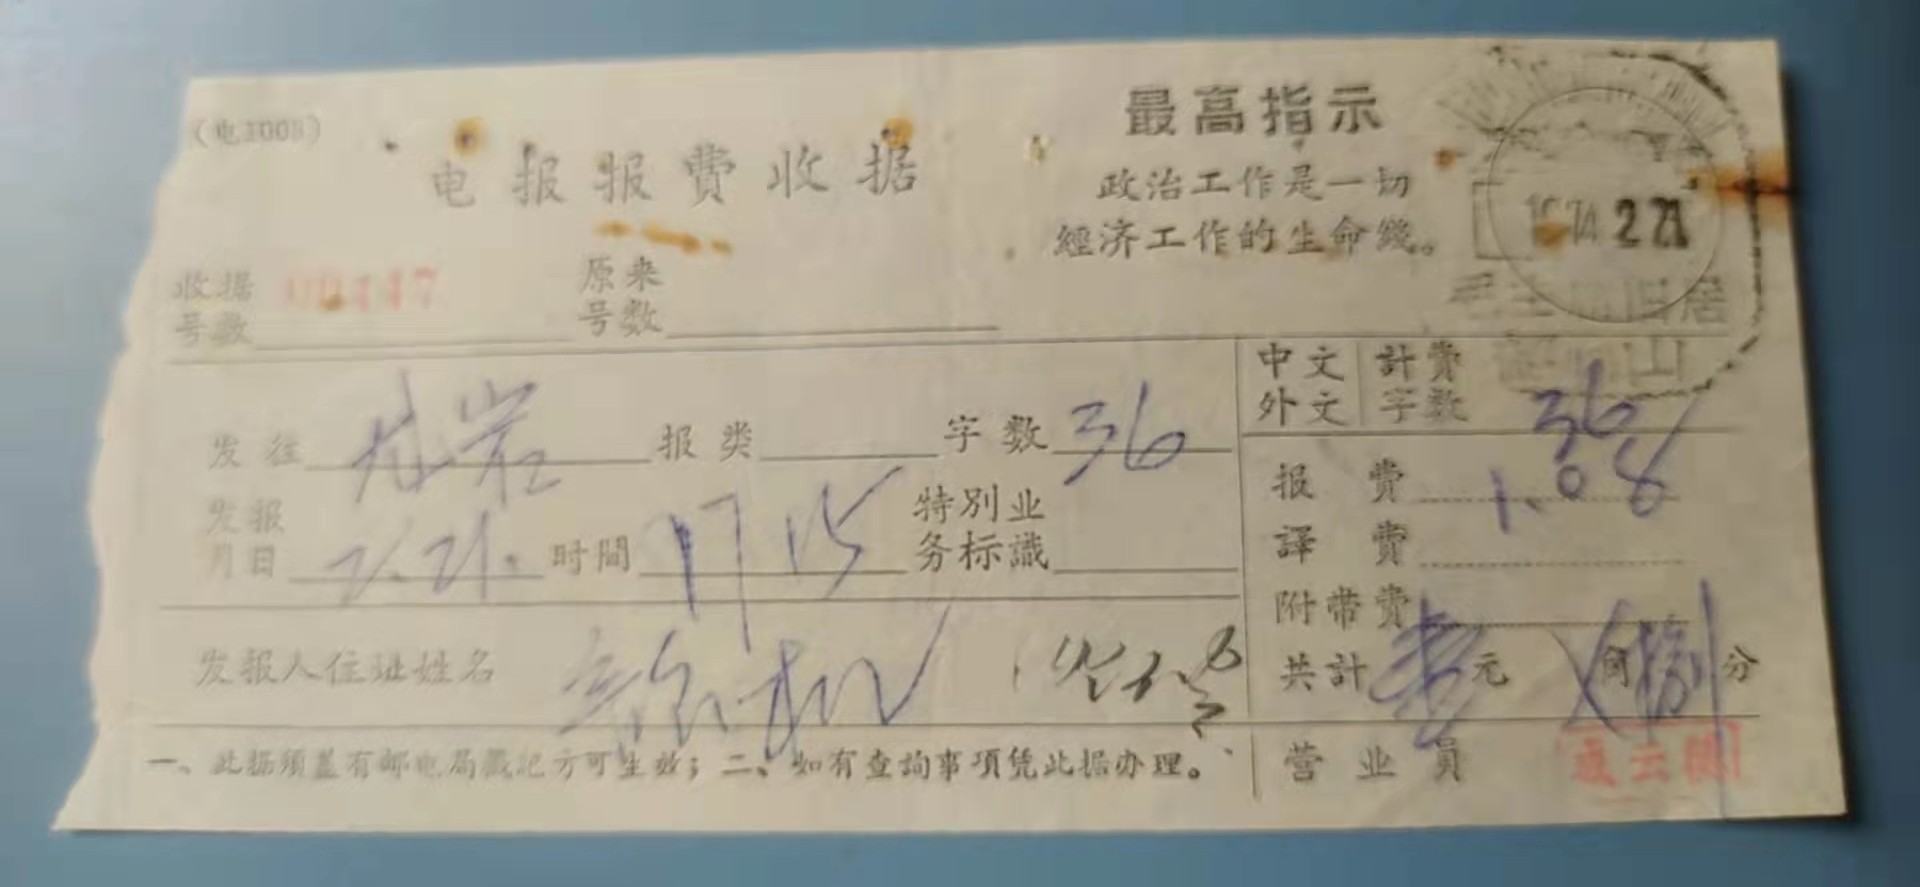 (电1003)
最高指示
电报报费收据
政治工作是一切
經济工作的生命綫。
1974 2 21
收据号数
原来号数
旧居
山
中文 計费
外文 字数 36
发往 龙岩 报类 字数 36
报费 1.08
发报月日 2.21. 时間 17 15 特别业务标識
譯费
附带费
发报人住址姓名
共計 壹元 角 捌分
一、此据須盖有邮电局戳記方可生效；二、如有查詢事項凭此据办理。
营业员